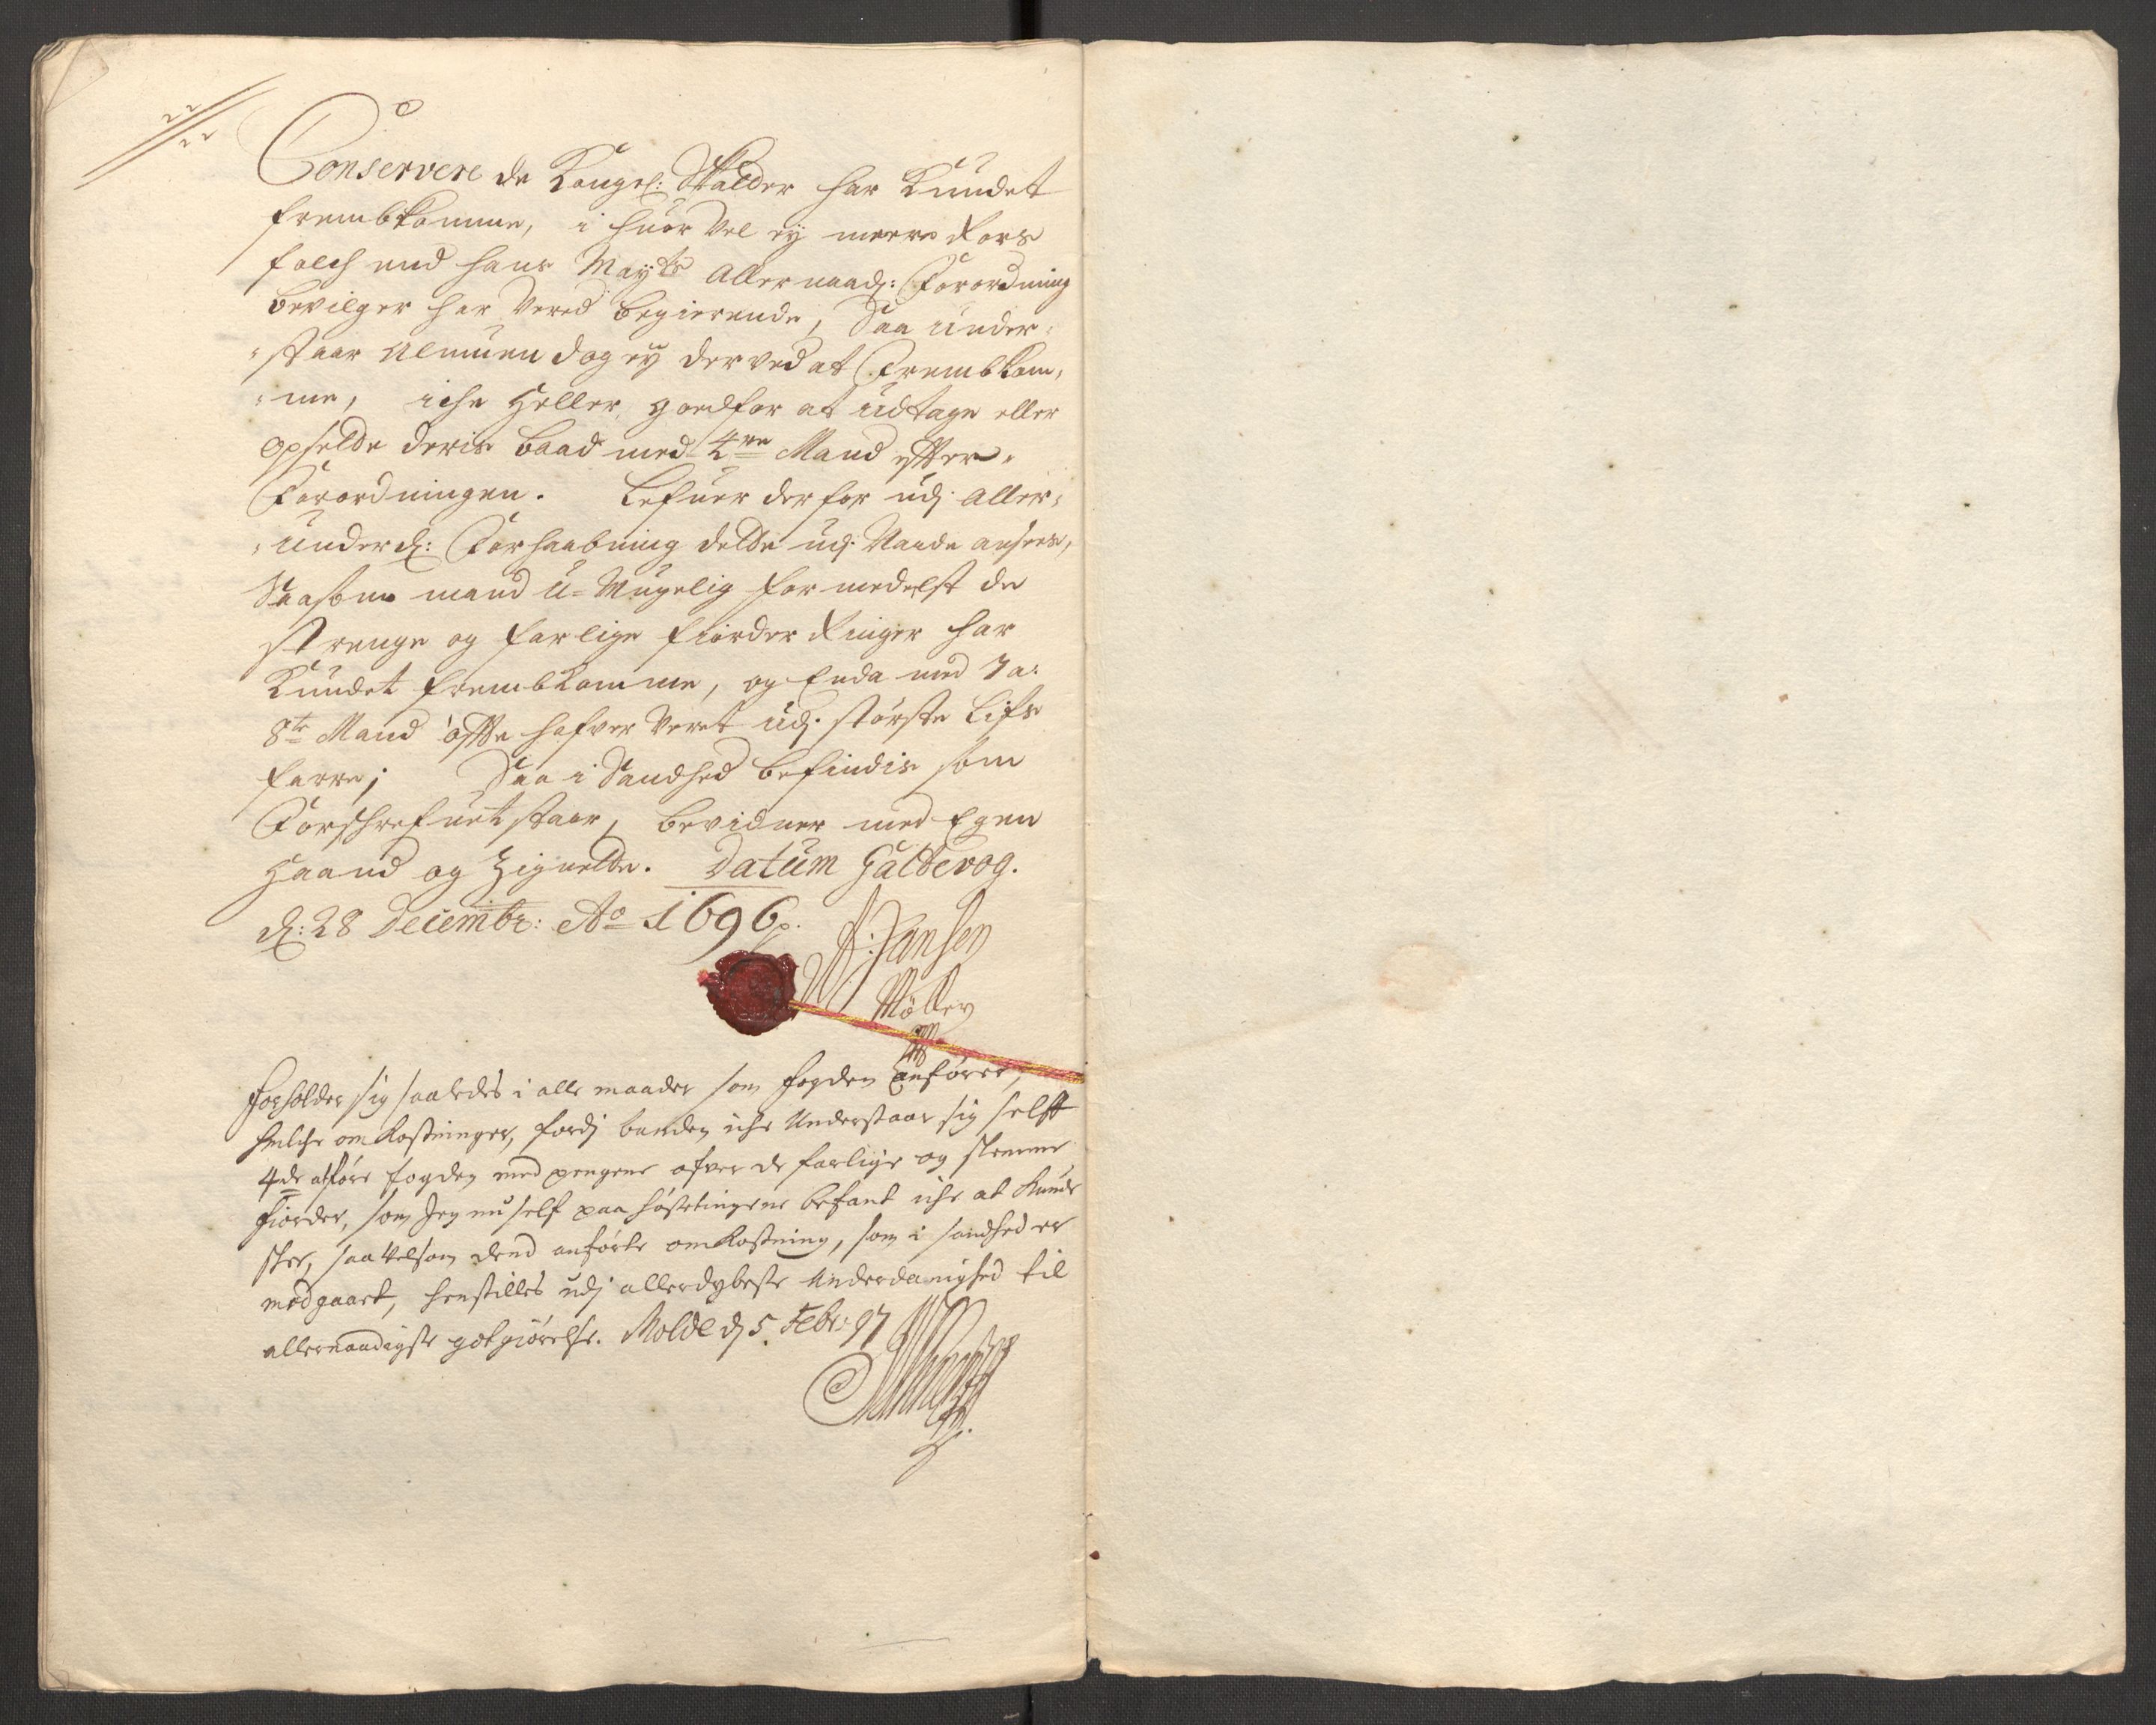 Conservere de Kongel: Malder har Kundet
frembkomme, i huor vel ey meere Rors
folch end hans Mayts Allernaad: Forordning
bevilger har vered begierende, Saa under-
-staar Almuen dog ey derved at Frembkom-
-me, iche Heller goedfor at udtage eller
opholde deris baad med 4re Mand efter
Forordningen. Lefuer derfor udj Aller-
-underd: Forhaabning dette udj Naade ansees,
Saasom mand U-Mugelig formedelst de
strenge og farlige fiorder Ringer har
Kundet frembkomme, og Enda med 7 a
8te Mand offte hafver veret udj største Lifs
farre; Saa i Sandhed befindis som
Forschrefuet staar, bevidner med Egen
Haand og Zignette. Datum Galtevog.
d: 28 Decembr: Ao 1696.
Hansen
Møller
Forholder sig saaledes i alle maader som fogden anfører,
huilche omkostninger, fordj bunden iche understaar sig self
4de at føre fogden med pengene ofver de farlige og slemme
fiorder, som Jeg nu self paa høstetingene befant iche at kunde
skee, saa velsom dend anførte omkostning, som i sandhed er
medgaaet, henstilles udj allerdybeste underdanighed til
allernaadigste gotgiørelse. Molde d 5 Febr: 97